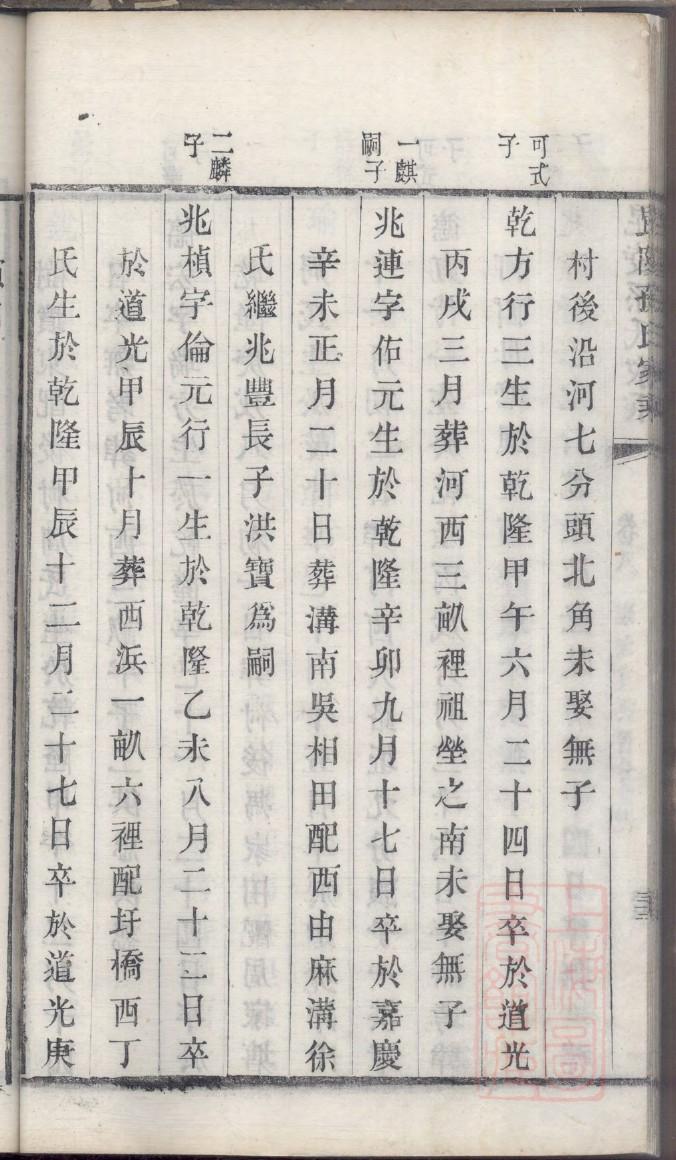 村後沿河七分頭北角未娶無子
可式
子
乾方行三生於乾隆甲午六月二十四日卒於道光
丙戌三月葬河西三畝裡祖塋之南未娶無子
一麒
嗣子
兆連字佑元生於乾隆辛卯九月十七日卒於嘉慶
辛未正月二十日葬溝南吳相田配西由麻溝徐
氏繼兆豐長子洪寶爲嗣
二麟
子
兆楨字倫元行一生於乾隆乙未八月二十三日卒
於道光甲辰十月葬西浜一畝六裡配圩橋西丁
氏生於乾隆甲辰十二月二十七日卒於道光庚